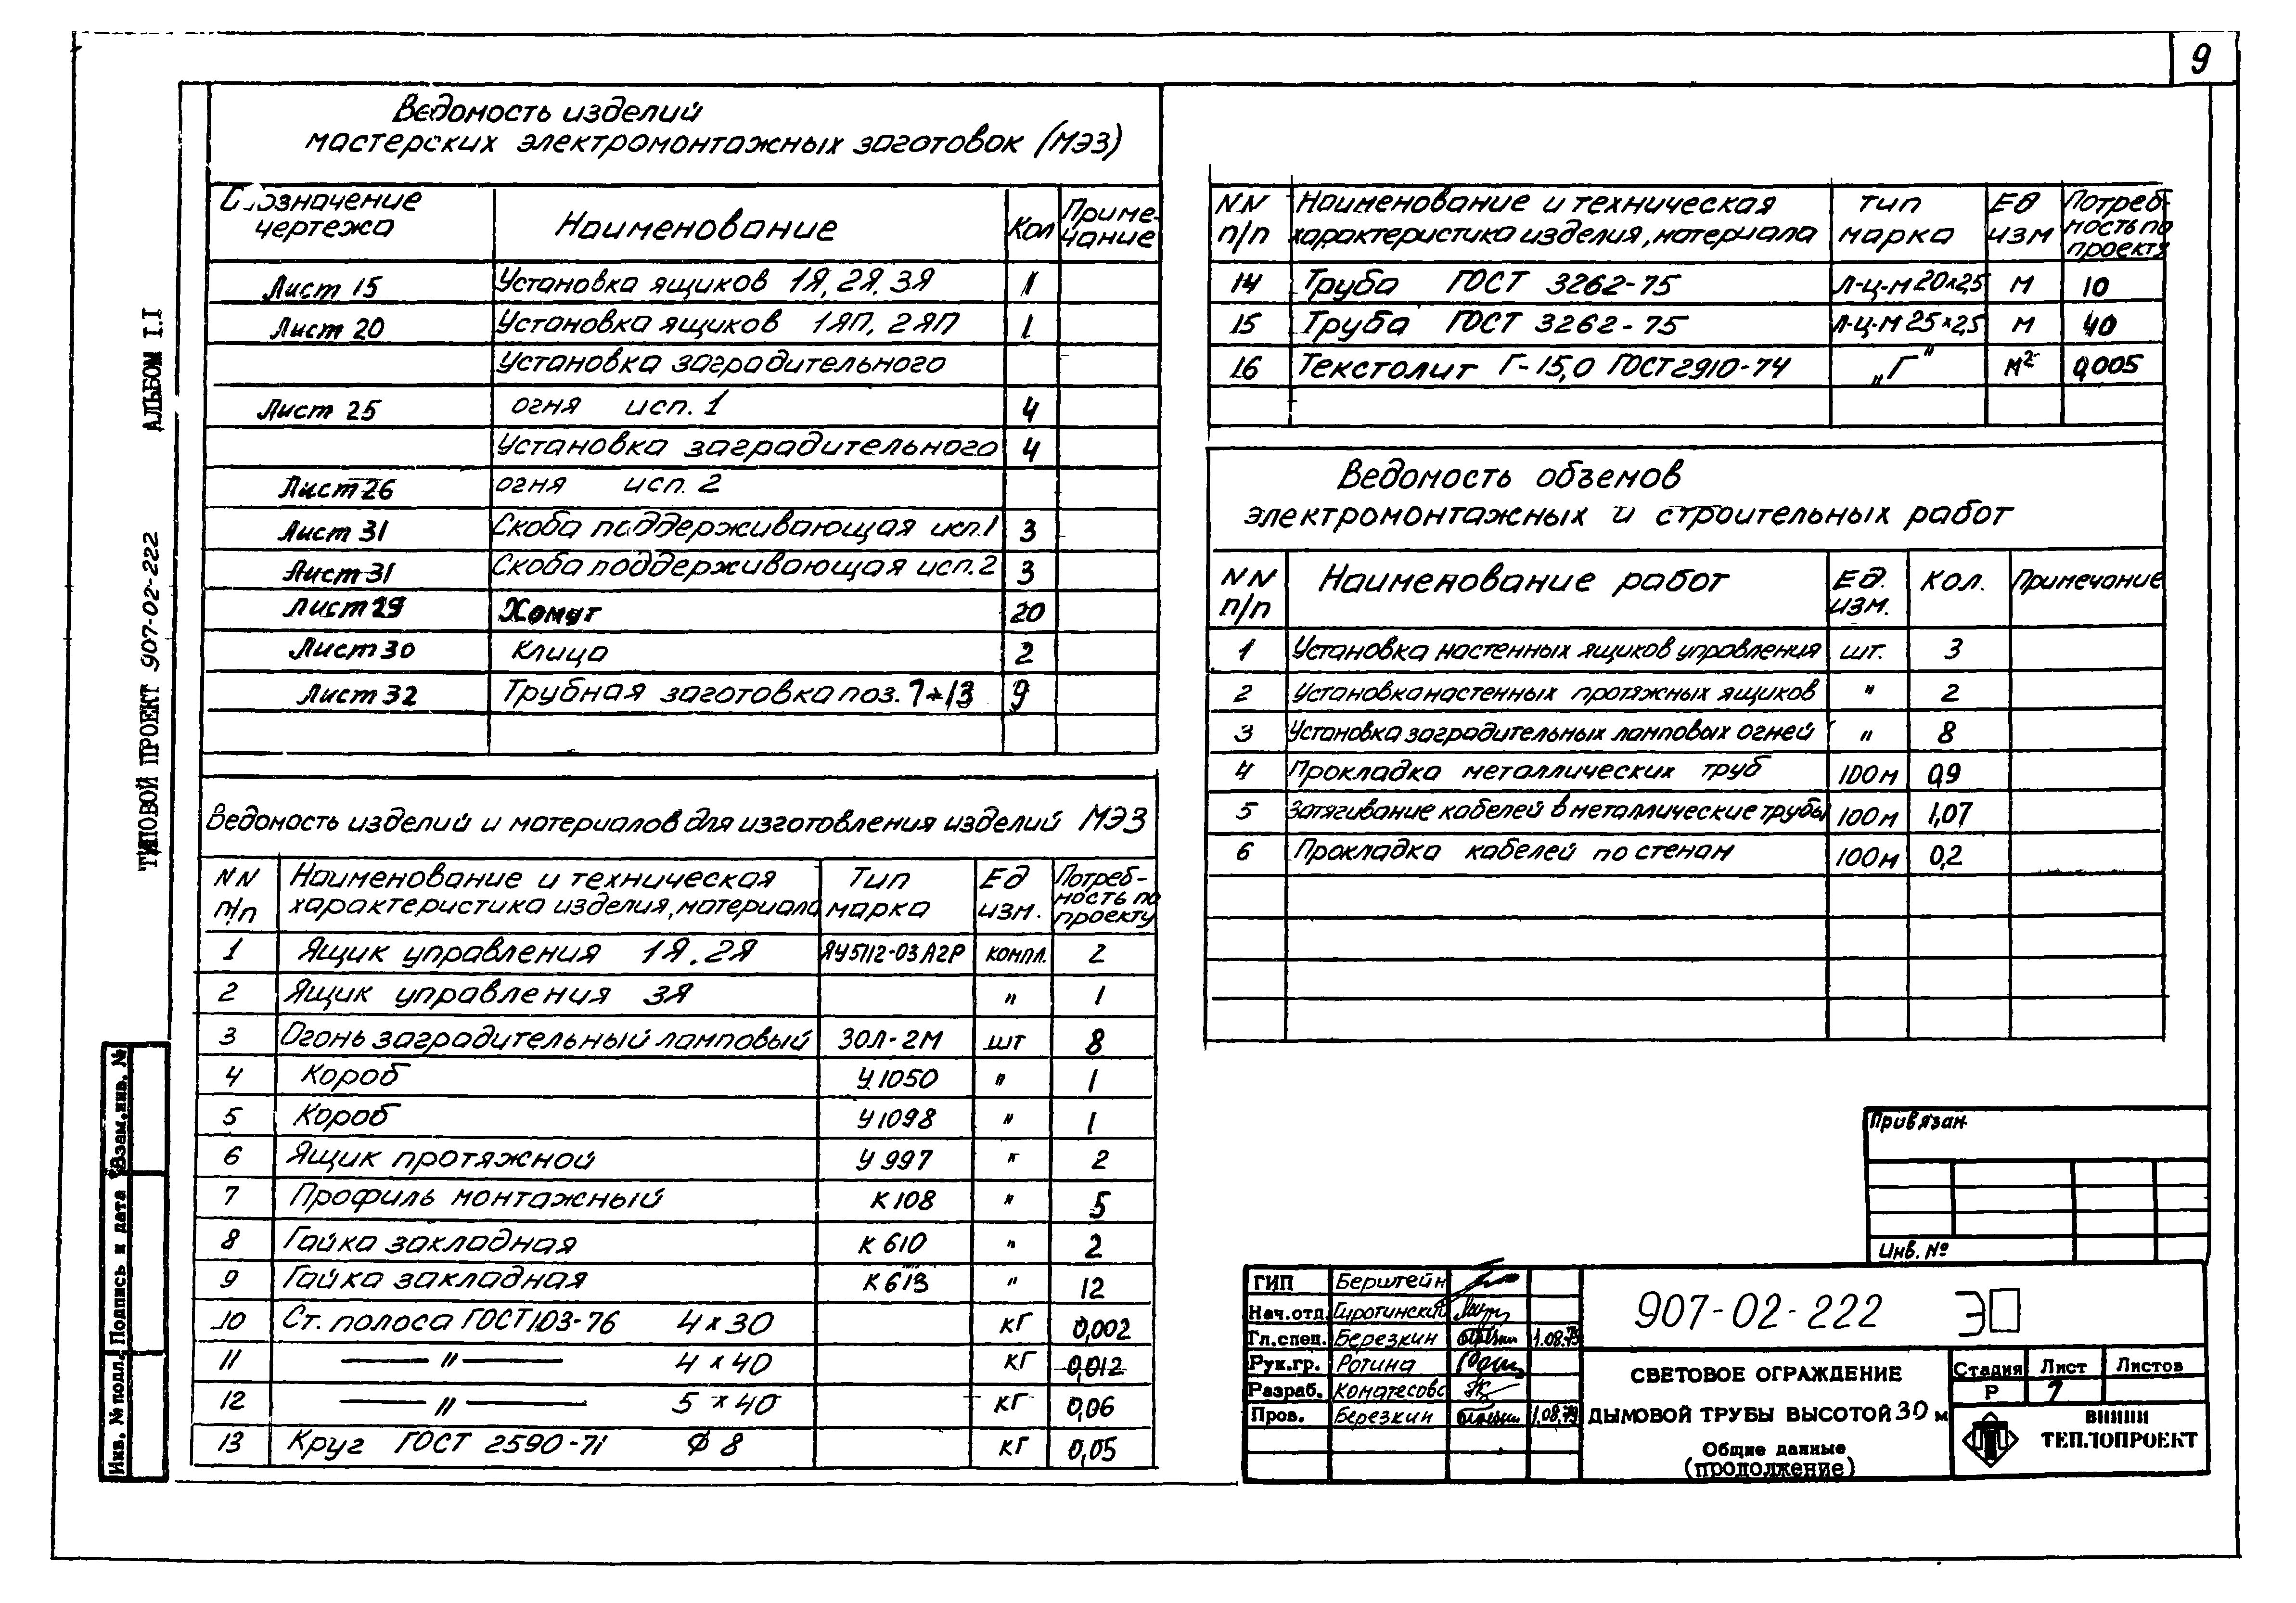 9
АЛЬБОМ I.I
ТИПОВОЙ ПРОЕКТ 907-02-222
Взам.инв. №
Подпись и дата
Инв. № подл.
Ведомость изделий
мастерских электромонтажных заготовок (МЭЗ)
Обозначение чертежа | Наименование | Кол | Примечание
Лист 15 | Установка ящиков 1Я, 2Я, 3Я | 1
Лист 20 | Установка ящиков 1ЯП, 2ЯП | 1
Установка заградительного
Лист 25 | огня исп. 1 | 4
Установка заградительного | 4
Лист 26 | огня исп. 2
Лист 31 | Скоба поддерживающая исп.1 | 3
Лист 31 | Скоба поддерживающая исп.2 | 3
Лист 29 | Хомут | 20
Лист 30 | Клица | 2
Лист 32 | Трубная заготовка поз. 7÷13 | 9
Ведомость изделий и материалов для изготовления изделий МЭЗ
NN п/п | Наименование и техническая характеристика изделия, материала | Тип марка | Ед изм. | Потребность по проекту
1 | Ящик управления 1Я, 2Я | ЯУ5112-03А2Р | компл. | 2
2 | Ящик управления 3Я | " | 1
3 | Огонь заградительный ламповый | ЗОЛ-2М | шт | 8
4 | Короб | У1050 | " | 1
5 | Короб | У1098 | " | 1
6 | Ящик протяжной | У 997 | " | 2
7 | Профиль монтажный | К 108 | " | 5
8 | Гайка закладная | К 610 | " | 2
9 | Гайка закладная | К 613 | " | 12
10 | Ст. полоса ГОСТ 103-76 4×30 | кг | 0,002
11 | —— " —— 4×40 | кг | 0,012
12 | —— " —— 5×40 | кг | 0,06
13 | Круг ГОСТ 2590-71 Ф 8 | кг | 0,05
NN п/п | Наименование и техническая характеристика изделия, материала | тип марка | Ед изм | Потребность по проекту
14 | Труба ГОСТ 3262-75 | Л-Ц-М 20×2,5 | м | 10
15 | Труба ГОСТ 3262-75 | Л-Ц-М 25×2,5 | м | 40
16 | Текстолит Г-15,0 ГОСТ 2910-74 | „Г" | м² | 0,005
Ведомость объемов
электромонтажных и строительных работ
NN п/п | Наименование работ | Ед. изм. | Кол. | Примечание
1 | Установка настенных ящиков управления | шт. | 3
2 | Установка настенных протяжных ящиков | " | 2
3 | Установка заградительных ламповых огней | " | 8
4 | Прокладка металлических труб | 100м | 0,9
5 | Затягивание кабелей в металлические трубы | 100м | 1,07
6 | Прокладка кабелей по стенам | 100м | 0,2
Привязан
Инв. №
ГИП | Берштейн
Нач.отд. | Сиротинский
Гл.спец. | Березкин | 1.08.79
Рук.гр. | Ротина
Разраб.
Пров. | Березкин | 1.08.79
907-02-222 Э
СВЕТОВОЕ ОГРАЖДЕНИЕ
ДЫМОВОЙ ТРУБЫ ВЫСОТОЙ 30 м
Общие данные
(продолжение)
Стадия | Лист | Листов
Р | 7
ВНИПИ
ТЕПЛОПРОЕКТ